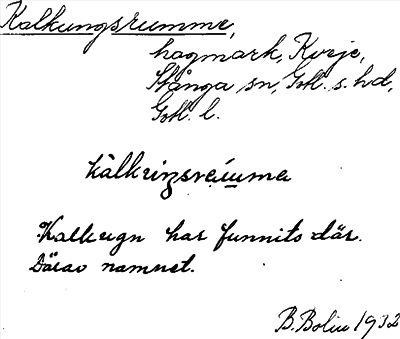 Kalkungsrumme,
hagmark, Kvie,
Stånga sn, Gotl. s. hd,
Gotl. l.
kàlkuŋsraúma
Kalkugn har funnits där.
Därav namnet.
B. Bolin 1932